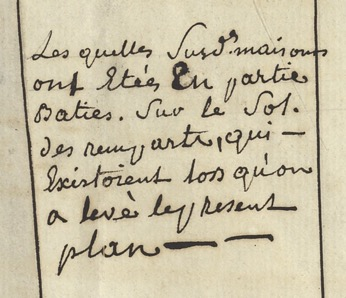 Les quelles Susd.s maisons
ont Etées En partie
Baties. Sur le Sol.
des remparts, qui —
Existoient lors qu'on
a levé le present
plan — —